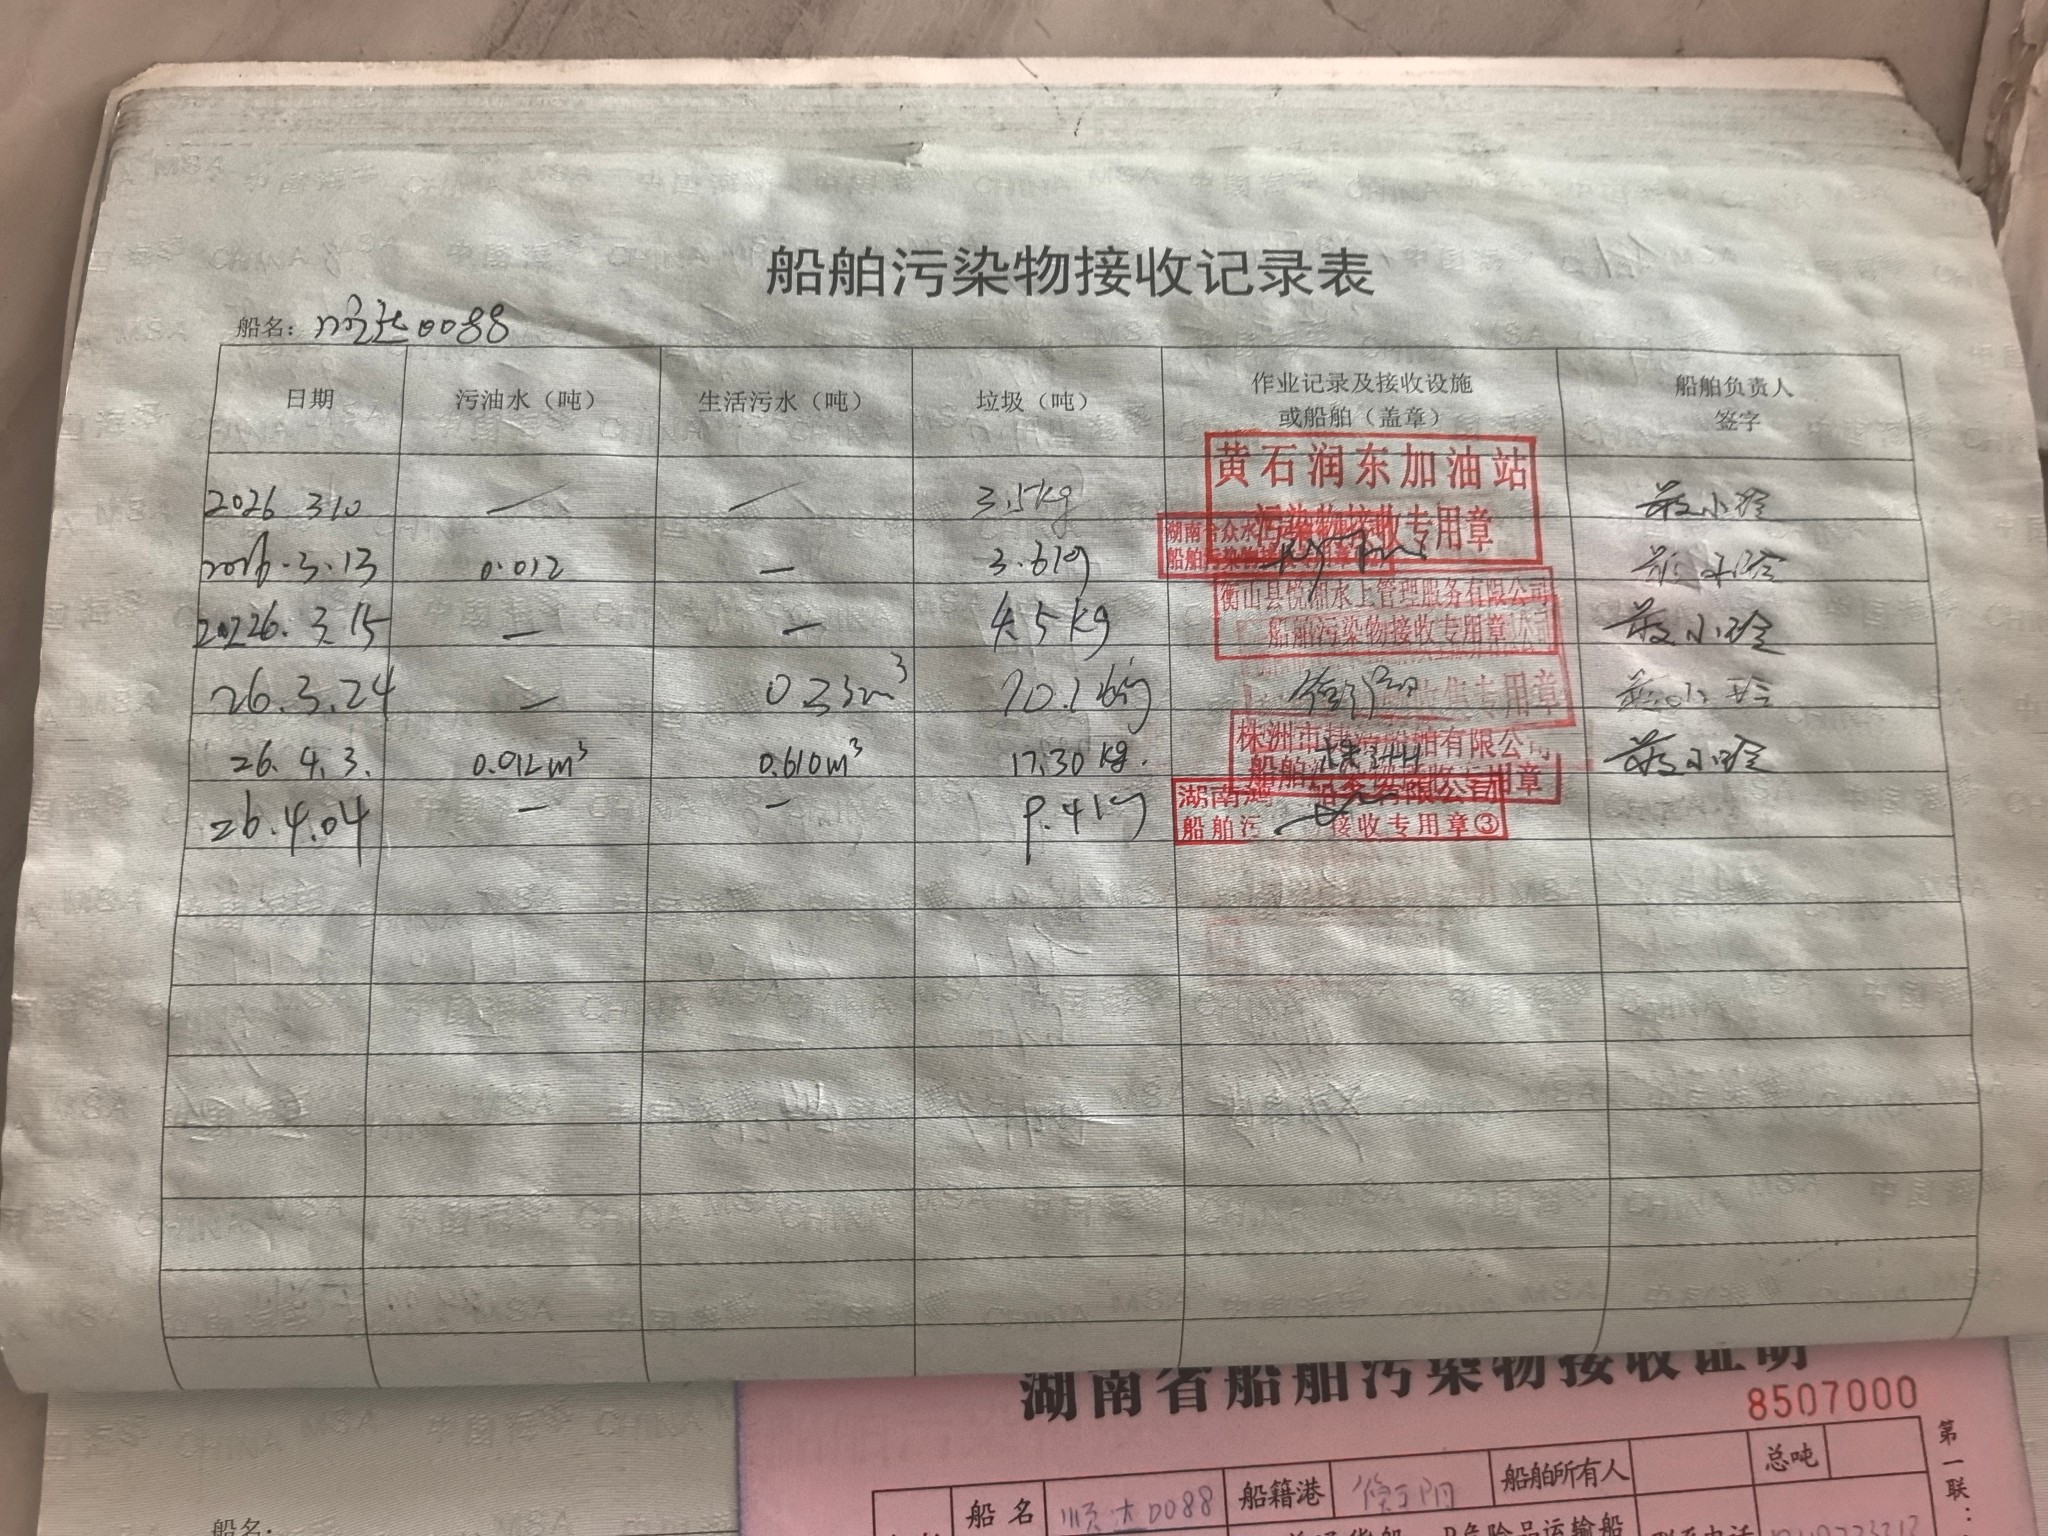 船舶污染物接收记录表
船名：顺达0088
日期 污油水（吨） 生活污水（吨） 垃圾（吨） 作业记录及接收设施或船舶（盖章） 船舶负责人签字
2026 3.10 — — 3.5kg 黄石润东加油站 污染物接收专用章
2026.3.13 0.012 — 3.61g 湖南合众水 船舶污染物
2026.3.15 — — 4.5kg 衡山县悦湘水上管理服务有限公司 船舶污染物接收专用章
26.3.24 — 0.23m³ 衡阳 收集专用章
26.4.3. 0.012m³ 0.610m³ 17.30kg. 株洲市 船舶有限公司 船舶污染物接收专用章 株洲
26.4.04 — — 9.4kg 湖南 有限公司 船舶污 接收专用章③
湖南省船舶污染物接收证明
8507000
第一联：
船名 顺达0088 船籍港 衡阳 船舶所有人 总吨
危险品运输船
船名：